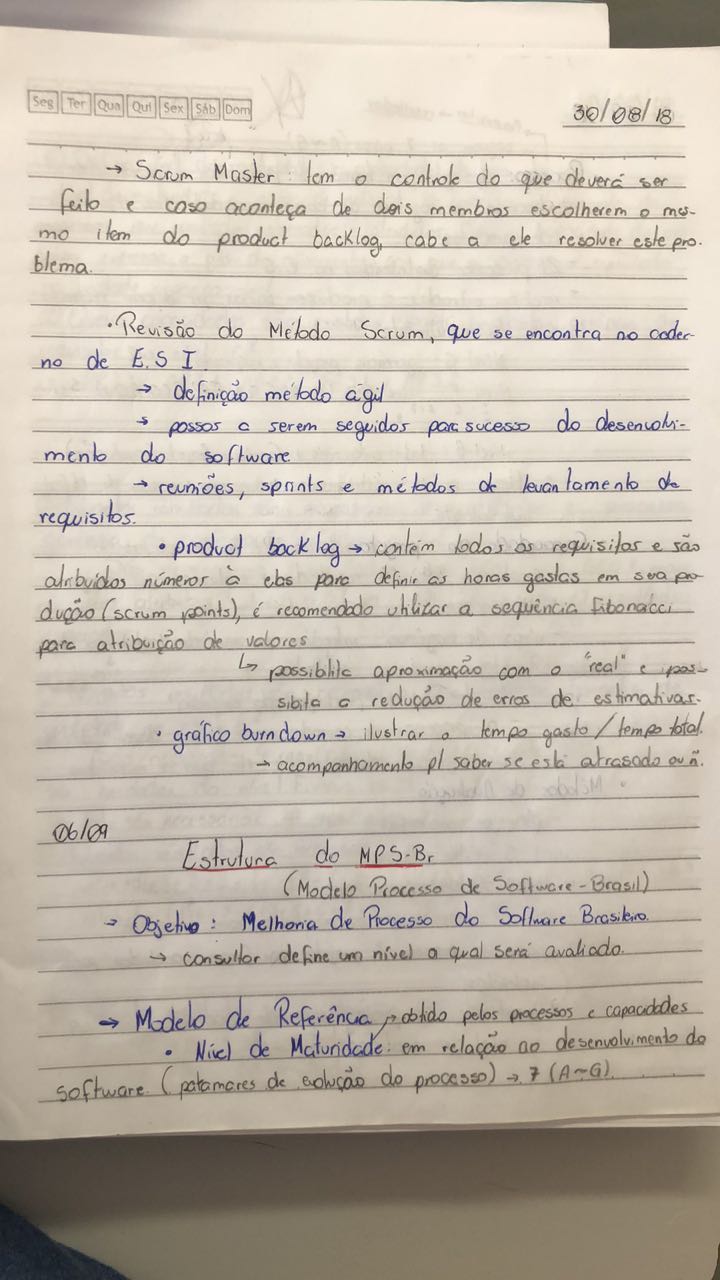 Seg Ter Qua Qui Sex Sáb Dom
30/08/18
→ Scrum Master: tem o controle do que deverá ser
feito e caso aconteça de dois membros escolherem o mes-
mo item do product backlog, cabe a ele resolver este pro-
blema.
• Revisão do Método Scrum, que se encontra no cader-
no de E.S I.
→ definição método ágil
→ passos a serem seguidos para sucesso do desenvolvi-
mento do software
→ reuniões, sprints e métodos de levantamento de
requisitos.
• product backlog → contém todos os requisitos e são
atribuídos números à eles para definir as horas gastas em sua pro-
dução (scrum points), é recomendado utilizar a sequência Fibonacci
para atribuição de valores
↳ possibilita aproximação com o "real" e pos-
sibita a redução de erros de estimativas.
• gráfico burndown → ilustrar o tempo gasto / tempo total.
→ acompanhamento p/ saber se está atrasado ou ñ.
06/09
Estrutura do MPS-Br
(Modelo Processo de Software - Brasil)
→ Objetivo: Melhoria de Processo do Software Brasileiro.
→ consultor define um nível a qual será avaliado.
→ Modelo de Referência → obtido pelos processos e capacidades
• Nível de Maturidade: em relação ao desenvolvimento do
software. (patamares de evolução do processo) → 7 (A-G).